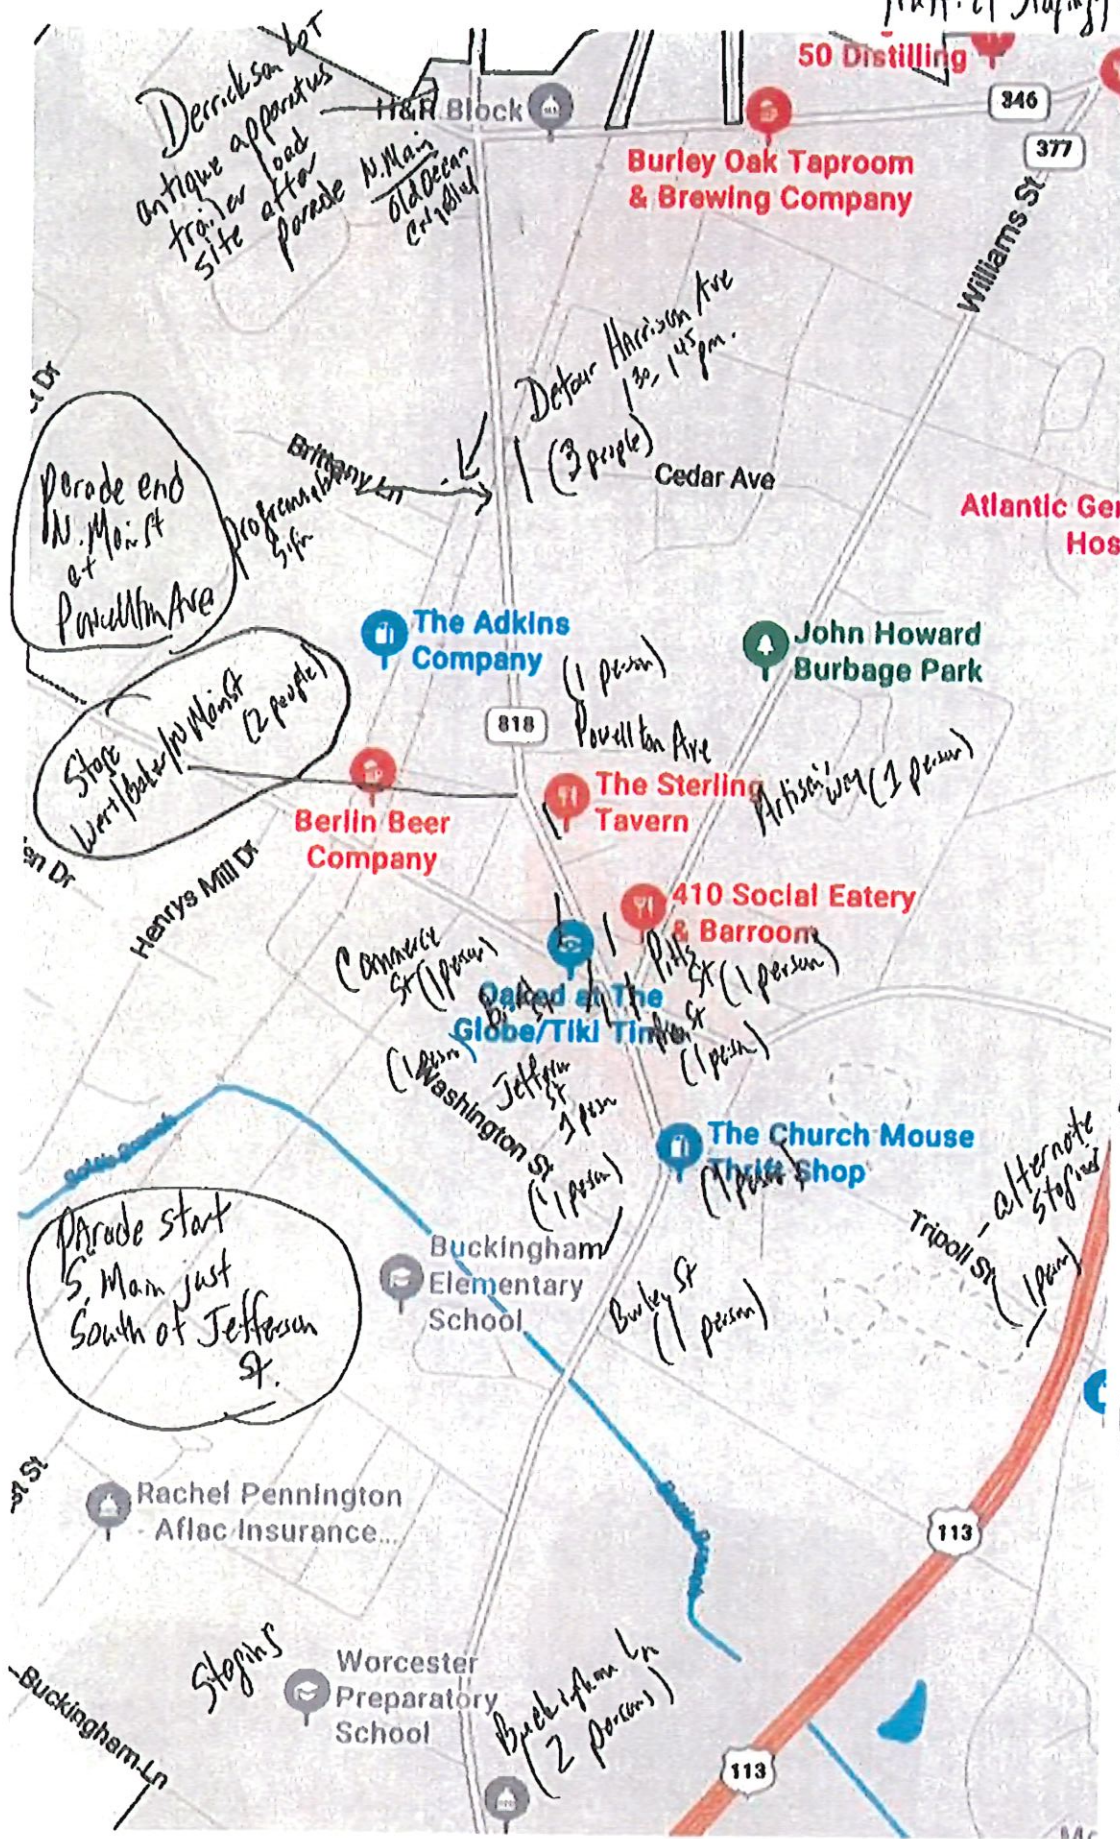 50 Distilling
Derrickson LOT
antique apparatus
trailer load
site after
parade
H&R Block
N. Main
Old Ocean
346
377
Burley Oak Taproom
& Brewing Company
Williams St
Detour Harrison Ave
1³⁰-1⁴⁵ pm.
(3 people)
Dr
Brittany Ln
Cedar Ave
Parade end
N. Main st
at
Powellton Ave
programmable
Sign
Atlantic Ge
Hos
The Adkins
Company
John Howard
Burbage Park
(1 person)
818
Powellton Ave
Stage
West/Baker/N Main st
(2 people)
The Sterling
Tavern
Artisans Way (1 person)
Berlin Beer
Company
en Dr
Henrys Mill Dr
410 Social Eatery
& Barroom
Commerce
St (1 person)
Pitts
St (1 person)
at The
Globe/Tiki Tim
St
(1 person)
(1 person)
Washington St
Jefferson
St
1 person
(1 person)
The Church Mouse
Thrift Shop
(1 person)
- alternate
staging
Tripoli St
(1 person)
Parade start
S. Main just
South of Jefferson
St.
Buckingham
Elementary
School
Burley St
(1 person)
St
Rachel Pennington
- Aflac Insurance...
113
Staging
Worcester
Preparatory
School
Buckingham Ln
Buckingham Ln
(2 persons)
113